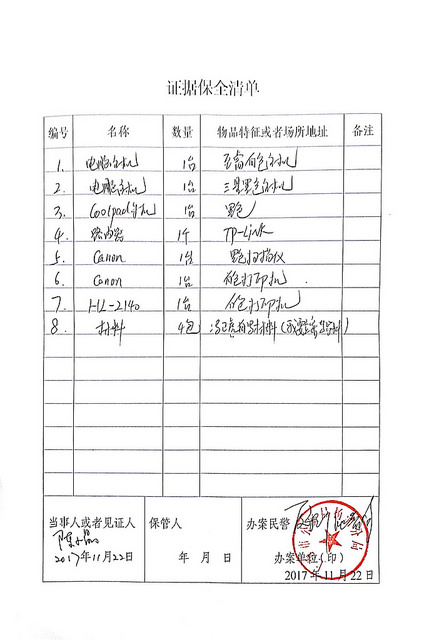 证据保全清单
编号 名称 数量 物品特征或者场所地址 备注
1. 电脑主机 1台 白色主机
2. 电脑主机 1台 三星黑色主机
3. Coolpad手机 1台 黑色
4. 路由器 1个 TP-Link
5. Canon 1台 黑色扫描仪
6. Canon 1台 色打印机
7. HL-2140 1台 白色打印机
8. 材料 4包 材料
当事人或者见证人 保管人 办案民警
陈
2017年11月22日 年 月 日 办案单位(印)
2017年11月22日